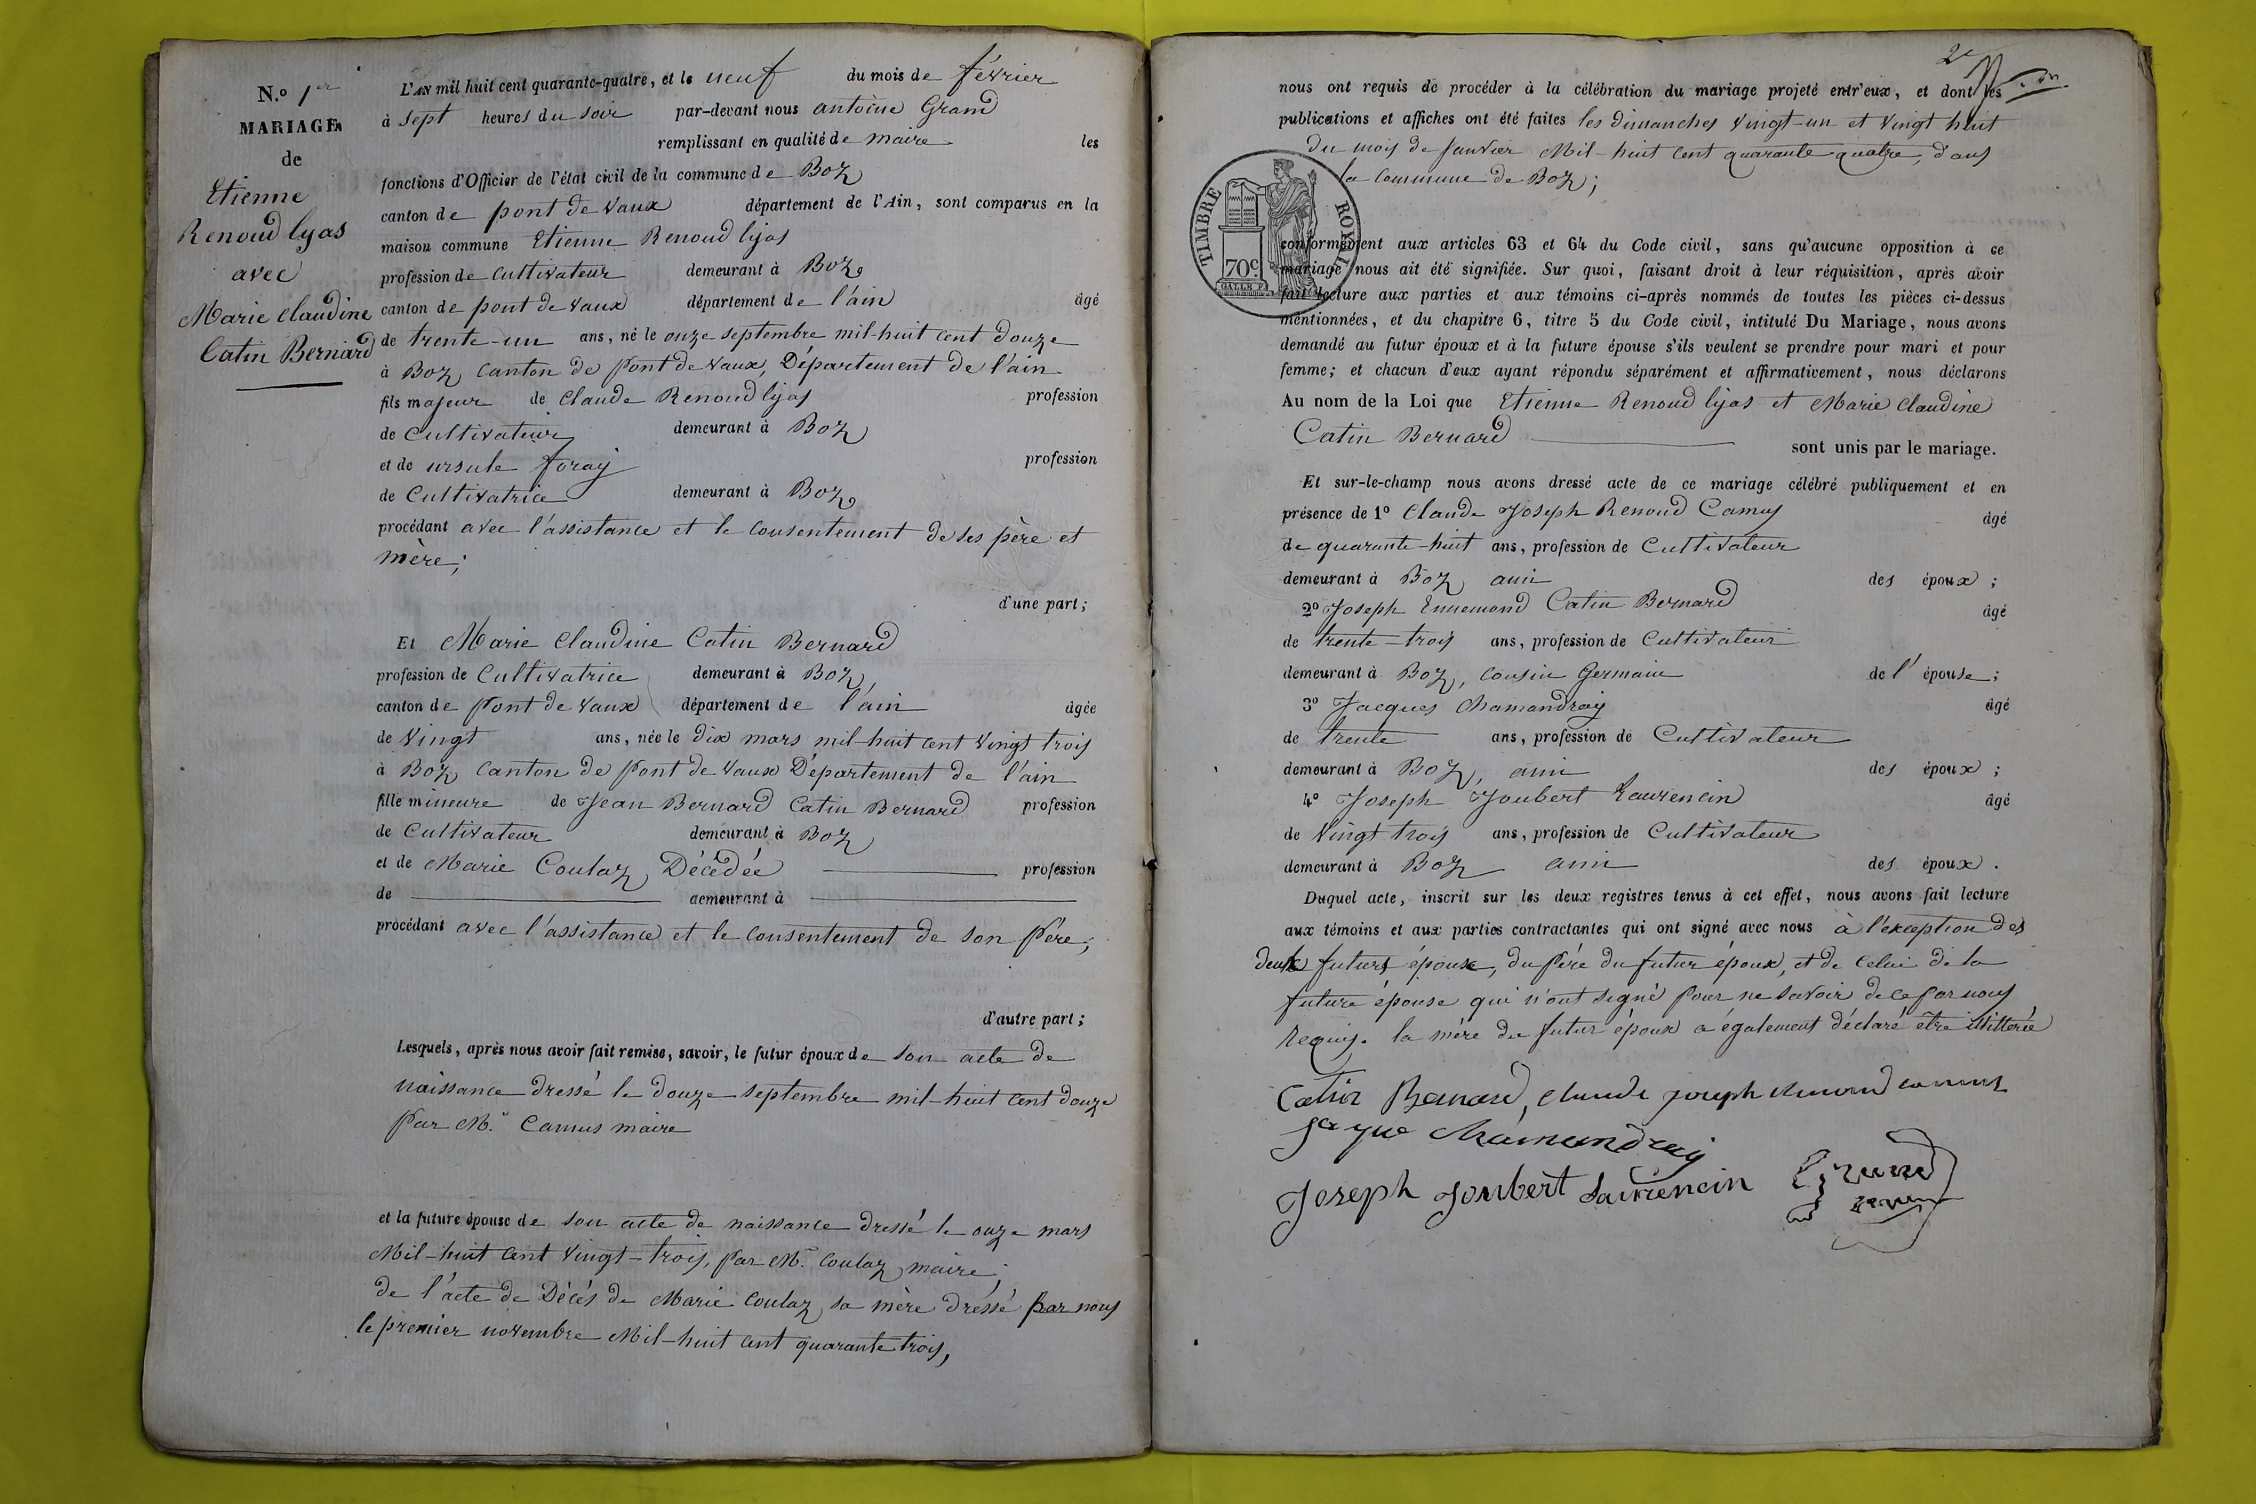 N.º 1er
MARIAGE
de
Etienne
Renoud lyas
avec
Marie Claudine
Catin Bernard
L'AN mil huit cent quarante-quatre, et le neuf du mois de février
à sept heures du soir par-devant nous antoine Grand
remplissant en qualité de maire les
fonctions d'Officier de l'état civil de la commune de Boz
canton de pont de Vaux département de l'Ain, sont comparus en la
maison commune Etienne Renoud lyas
profession de Cultivateur demeurant à Boz,
canton de pont de Vaux département de l'ain âgé
de trente-un ans, né le onze septembre mil-huit cent douze
à Boz, canton de Pont de Vaux, Département de l'ain
fils majeur de Claude Renoud lyas profession
de Cultivateur demeurant à Boz
et de ursule foray profession
de Cultivatrice demeurant à Boz,
procédant avec l'assistance et le consentement de ses père et
mère;
d'une part;
Et Marie Claudine Catin Bernard
profession de Cultivatrice demeurant à Boz,
canton de Pont de Vaux département de l'ain âgée
de Vingt ans, née le dix mars mil-huit cent Vingt trois
à Boz canton de Pont de Vaux Département de l'ain
fille mineure de Jean Bernard Catin Bernard profession
de Cultivateur demeurant à Boz
et de Marie Coulaz, Décédée profession
de demeurant à
procédant avec l'assistance et le consentement de son Père;
d'autre part;
Lesquels, après nous avoir fait remise, savoir, le futur époux de son acte de
naissance dressé le douze septembre mil-huit cent douze
Par Mr. Camus maire
et la future épouse de son acte de naissance dressé le onze mars
Mil-huit cent Vingt-trois, Par Mr. Coulaz, maire;
de l'acte de Décès de Marie Coulaz, sa mère dréssé par nous
le premier novembre Mil-huit cent quarante trois,
2e
nous ont requis de procéder à la célébration du mariage projeté entr'eux, et dont les
publications et affiches ont été faites les dimanches Vingt-un et Vingt huit
du mois de Janvier Mil-huit cent quarante quatre, dans
la Commune de Boz;
TIMBRE ROYAL
70c
conformément aux articles 63 et 64 du Code civil, sans qu'aucune opposition à ce
mariage nous ait été signifiée. Sur quoi, faisant droit à leur réquisition, après avoir
fait lecture aux parties et aux témoins ci-après nommés de toutes les pièces ci-dessus
mentionnées, et du chapitre 6, titre 5 du Code civil, intitulé Du Mariage, nous avons
demandé au futur époux et à la future épouse s'ils veulent se prendre pour mari et pour
femme; et chacun d'eux ayant répondu séparément et affirmativement, nous déclarons
Au nom de la Loi que Etienne Renoud lyas et Marie Claudine
Catin Bernard
sont unis par le mariage.
Et sur-le-champ nous avons dressé acte de ce mariage célébré publiquement et en
présence de 1º Claude Joseph Renoud Camus âgé
de quarante-huit ans, profession de Cultivateur
demeurant à Boz, ami des époux;
2º Joseph Ennemond Catin Bernard âgé
de trente-trois ans, profession de Cultivateur
demeurant à Boz, cousin Germain de l'épouse;
3º Jacques Chamandray âgé
de trente ans, profession de Cultivateur
demeurant à Boz, ami des époux;
4º Joseph Joubert Laurencin âgé
de Vingt trois ans, profession de Cultivateur
demeurant à Boz ami des époux.
Duquel acte, inscrit sur les deux registres tenus à cet effet, nous avons fait lecture
aux témoins et aux parties contractantes qui ont signé avec nous à l'exception des
deux futurs époux, du Père du futur époux, et de Celui de la
future épouse qui n'ont signé Pour ne savoir de ce Par nous
Requis. la mère du futur époux a également déclaré être illitterée
Catin Bernard, claude joseph renoud camus
jaque Chamandray
Joseph Joubert Laurencin Grand